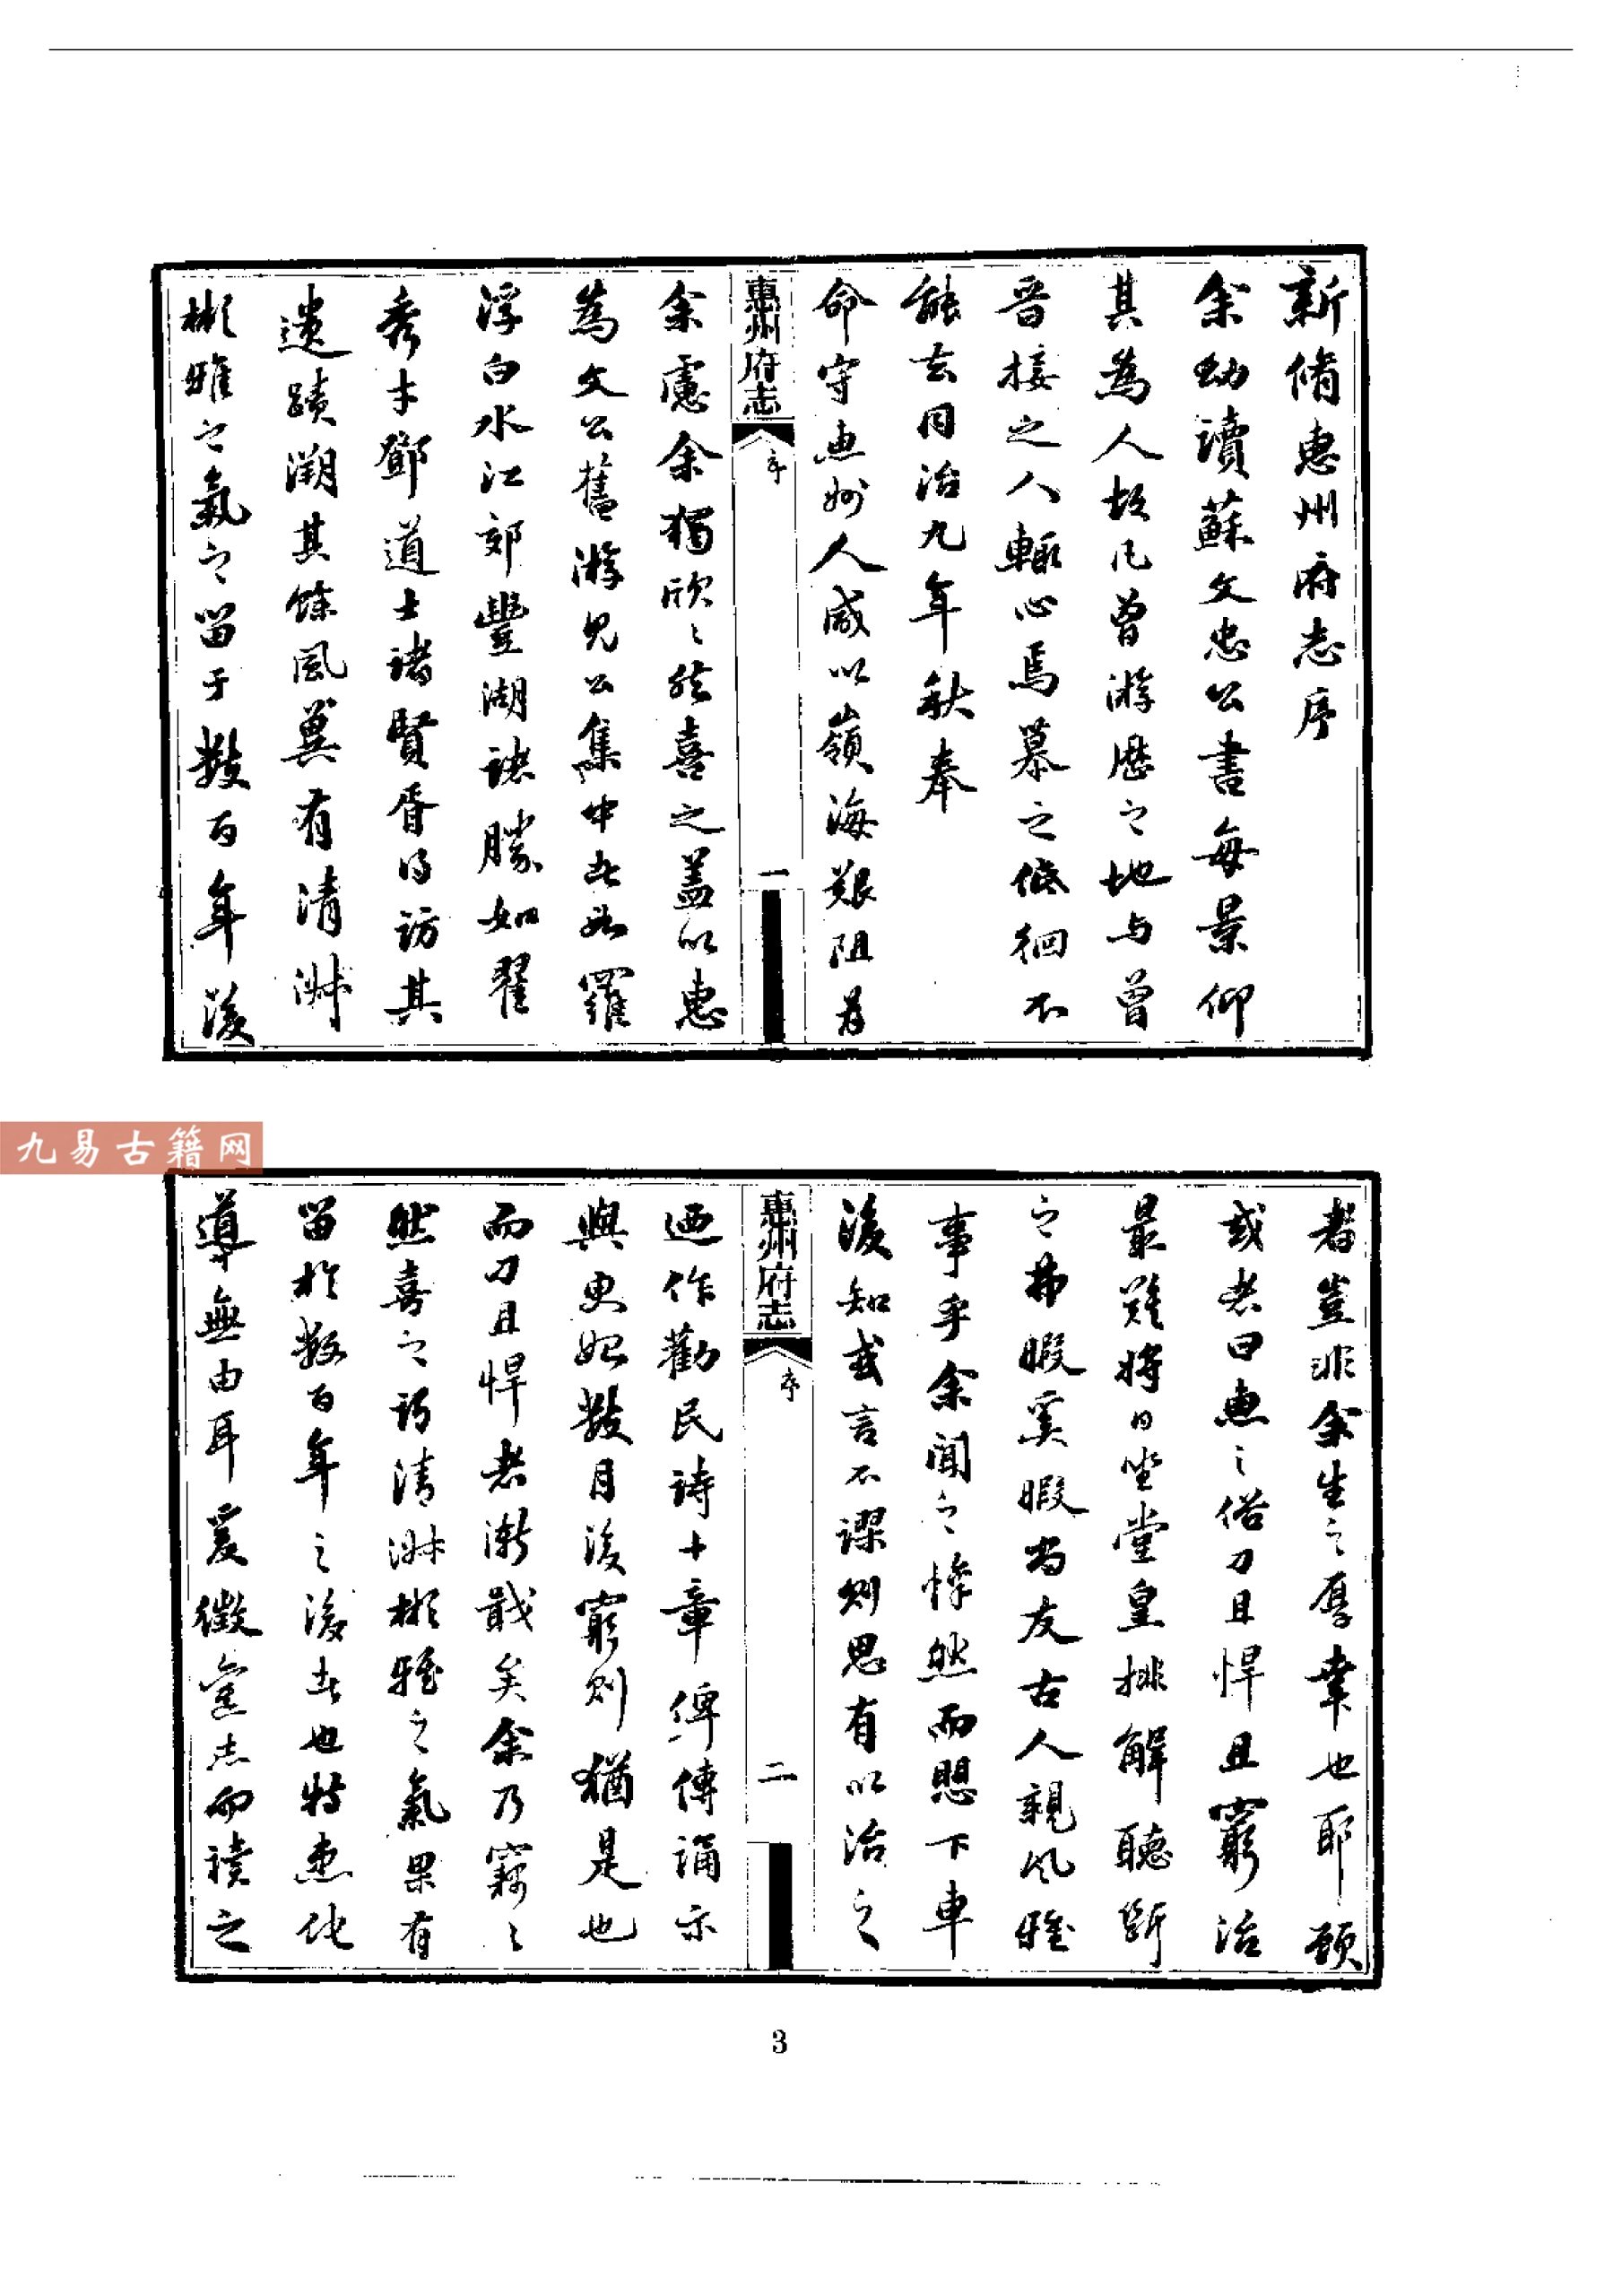 新脩惠州府志序
余幼讀蘇文忠公書每景仰
其為人故凡曾游歷之地与曾
晋接之人輒心焉慕之低徊不
能去同治九年秋奉
命守惠州人咸以嶺海艱阻為
惠州府志
序
一
余慮余獨欣〻然喜之盖以惠
為文公舊游見公集中者如羅
浮白水江郊豐湖諸勝如翟
秀才鄧道士諸賢胥得訪其
遺蹟溯其餘風冀有清淑
彬雅之氣之留于數百年後
九易古籍网
者豈非余生之厚幸也耶顧
或者曰惠之俗刀且悍且窮治
最難將日坐堂皇排解聽斷
之弗暇奚暇尚友古人親風雅
事乎余聞之悚然而惄下車
後知或言不謬則思有以治之
惠州府志
序
二
迺作勸民詩十章俾傳誦示
與更始數月後窮則猶是也
而刀且悍者漸戢矣余乃竊〻
然喜之謂清淑彬雅之氣果有
留於數百年之後者也特患化
導無由耳爰徵郡志而讀之
3